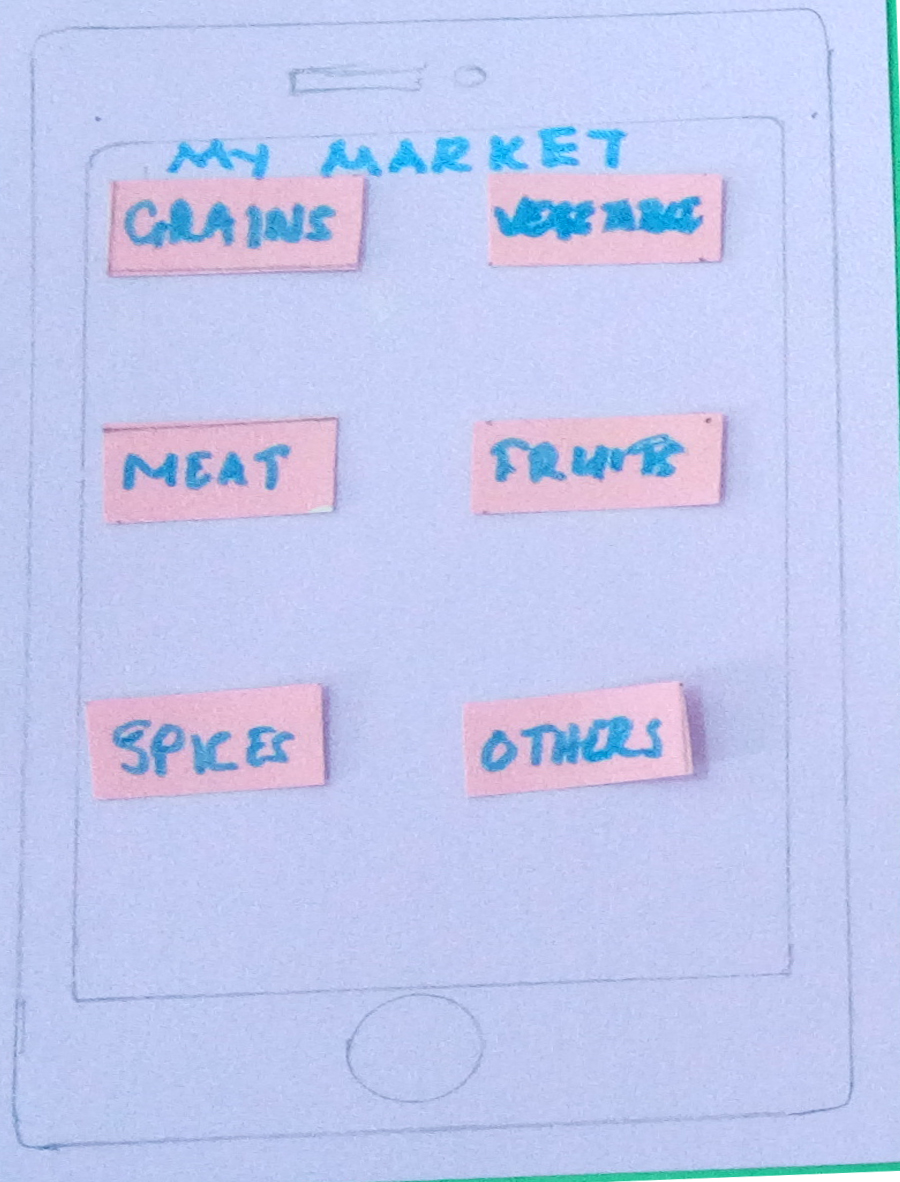 MY MARKET
GRAINS
VEGETABLE
MEAT
FRUITS
SPICES
OTHERS